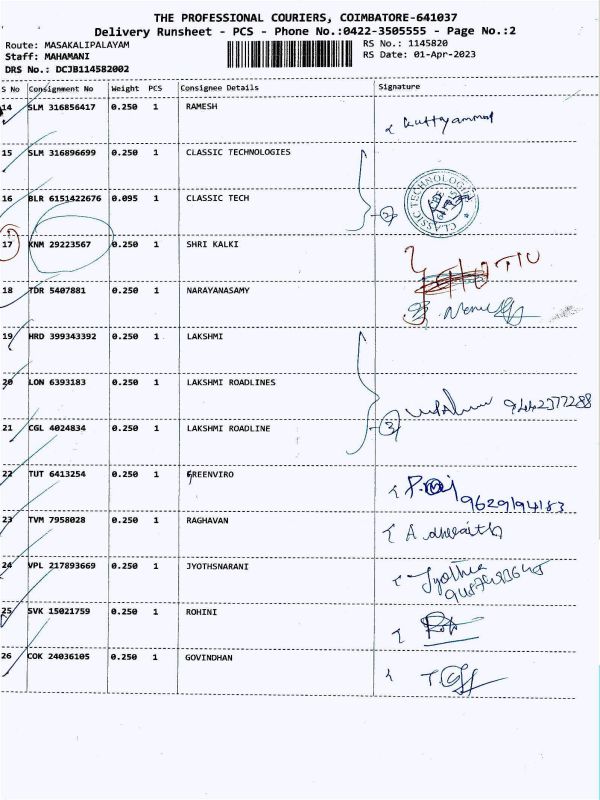 THE PROFESSIONAL COURIERS, COIMBATORE-641037
Delivery Runsheet - PCS - Phone No.:0422-3505555 - Page No.:2
Route: MASAKALIPALAYAM
RS No.: 1145820
Staff: MAHAMANI
RS Date: 01-Apr-2023
DRS No.: DCJB114582002
S No Consignment No Weight PCS Consignee Details Signature
14 SLM 316856417 0.250 1 RAMESH
Kuttyammal
15 SLM 316896699 0.250 1 CLASSIC TECHNOLOGIES
16 BLR 6151422676 0.095 1 CLASSIC TECH
2 CLASSIC TECHNOLOGIES
17 KNM 29223567 0.250 1 SHRI KALKI
18 TDR 5407881 0.250 1 NARAYANASAMY
19 HRD 399343392 0.250 1 LAKSHMI
20 LON 6393183 0.250 1 LAKSHMI ROADLINES
9442377288
21 CGL 4024834 0.250 1 LAKSHMI ROADLINE
3
22 TUT 6413254 0.250 1 GREENVIRO
9629194183
23 TVM 7958028 0.250 1 RAGHAVAN
A
24 VPL 217893669 0.250 1 JYOTHSNARANI
Jyothia
25 SVK 15021759 0.250 1 ROHINI
26 COK 24036105 0.250 1 GOVINDHAN